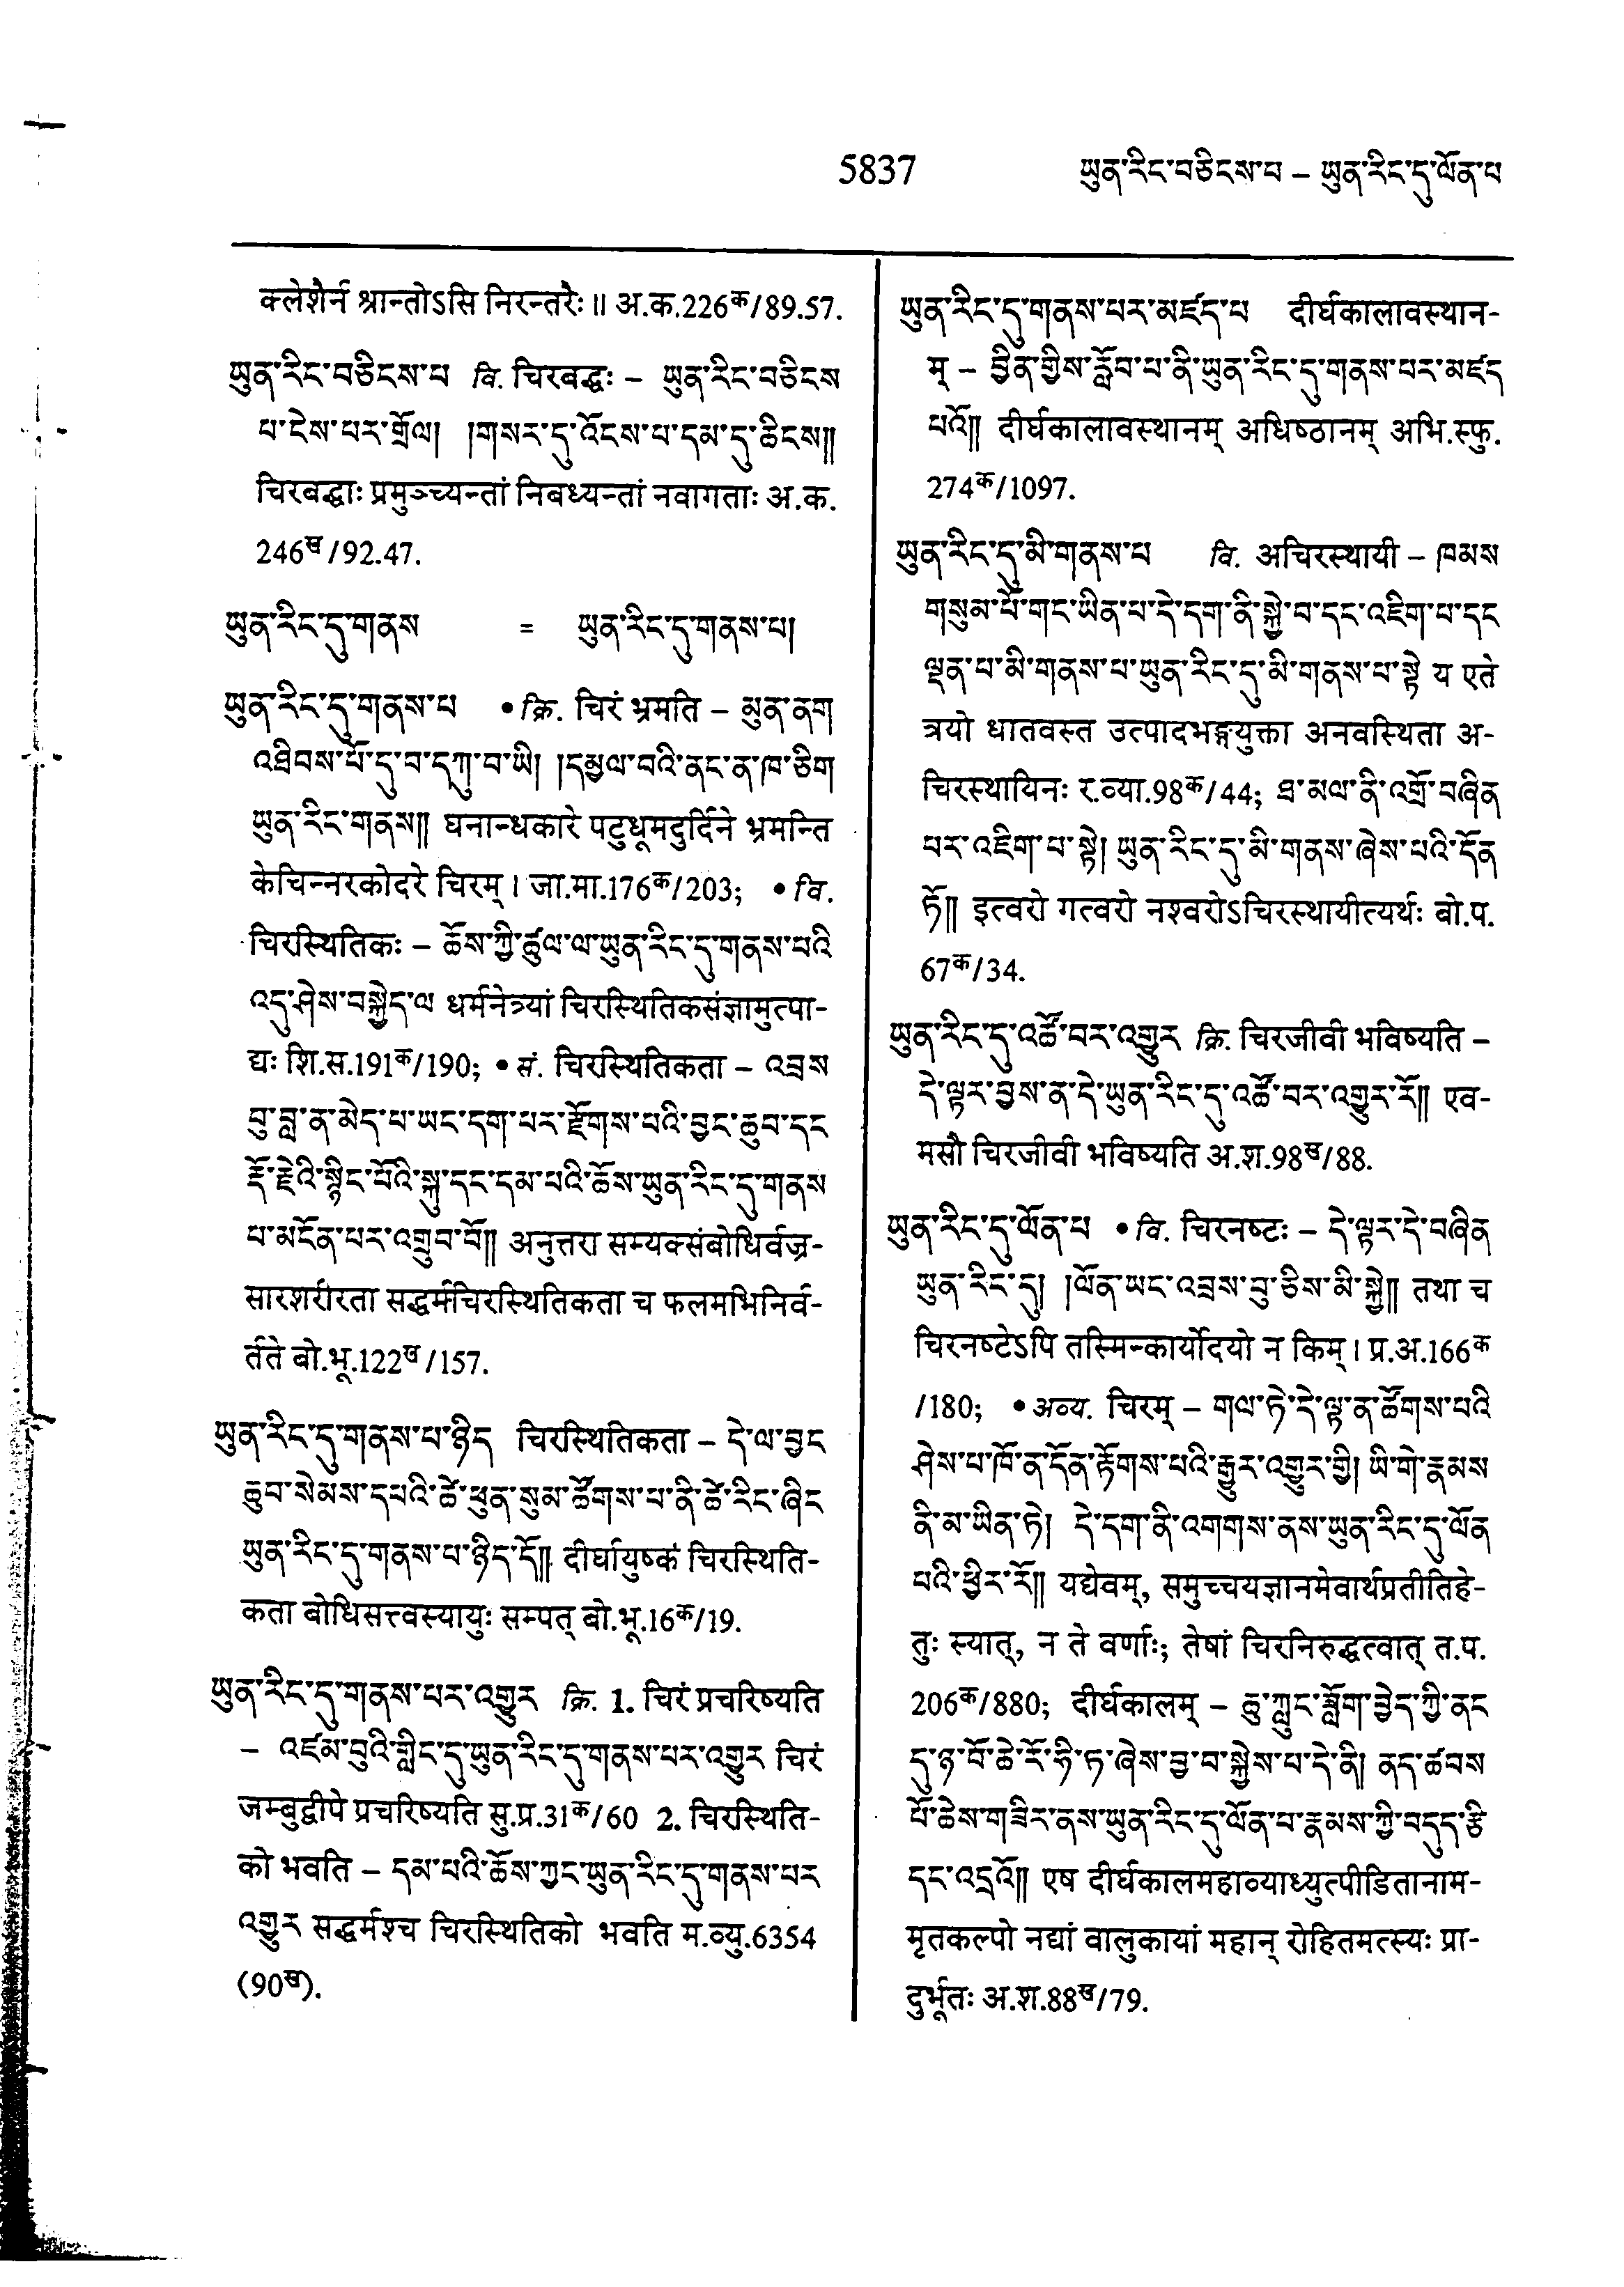 5837
ཡུན་རིང་བཅིངས་པ – ཡུན་རིང་དུ་ལོན་པ
क्लेशैर्न श्रान्तोऽसि निरन्तरैः ॥ अ.क.226क/89.57.
ཡུན་རིང་བཅིངས་པ वि. चिरबद्धः – ཡུན་རིང་བཅིངས
པ་ངེས་པར་གྲོལ། །གསར་དུ་འོངས་པ་དམ་དུ་ཆིངས༎
चिरबद्धाः प्रमुञ्च्यन्तां निबध्यन्तां नवागताः अ.क.
246ख/92.47.
ཡུན་རིང་དུ་གནས = ཡུན་རིང་དུ་གནས་པ།
ཡུན་རིང་དུ་གནས་པ • क्रि. चिरं भ्रमति – མུན་ནག
འཐིབས་པོ་དུ་བ་དཀུ་བ་ཡི། །དམྱལ་བའི་ནང་ན་ཁ་ཅིག
ཡུན་རིང་གནས༎ घनान्धकारे पटुधूमदुर्दिने भ्रमन्ति
केचिन्नरकोदरे चिरम् । जा.मा.176क/203; • वि.
चिरस्थितिकः – ཆོས་ཀྱི་ཚུལ་ལ་ཡུན་རིང་དུ་གནས་པའི
འདུ་ཤེས་བསྐྱེད་ལ धर्मनेत्र्यां चिरस्थितिकसंज्ञामुत्पा-
द्यः शि.स.191क/190; • सं. चिरस्थितिकता – འབྲས
བུ་བླ་ན་མེད་པ་ཡང་དག་པར་རྫོགས་པའི་བྱང་ཆུབ་དང
རྡོ་རྗེའི་སྙིང་པོའི་སྐུ་དང་དམ་པའི་ཆོས་ཡུན་རིང་དུ་གནས
པ་མངོན་པར་འགྲུབ་བོ༎ अनुत्तरा सम्यक्संबोधिर्वज्र-
सारशरीरता सद्धर्मचिरस्थितिकता च फलमभिनिर्व-
र्तते बो.भू.122ख/157.
ཡུན་རིང་དུ་གནས་པ་ཉིད चिरस्थितिकता – དེ་ལ་བྱང
ཆུབ་སེམས་དཔའི་ཚེ་ཕུན་སུམ་ཚོགས་པ་ནི་ཚེ་རིང་ཞིང
ཡུན་རིང་དུ་གནས་པ་ཉིད་དོ༎ दीर्घायुष्कं चिरस्थिति-
कता बोधिसत्त्वस्यायुः सम्पत् बो.भू.16क/19.
ཡུན་རིང་དུ་གནས་པར་འགྱུར क्रि. 1. चिरं प्रचरिष्यति
– འཛམ་བུའི་གླིང་དུ་ཡུན་རིང་དུ་གནས་པར་འགྱུར चिरं
जम्बुद्वीपे प्रचरिष्यति सु.प्र.31क/60 2. चिरस्थिति-
को भवति – དམ་པའི་ཆོས་ཀྱང་ཡུན་རིང་དུ་གནས་པར
འགྱུར सद्धर्मश्च चिरस्थितिको भवति म.व्यु.6354
(90ख).
ཡུན་རིང་དུ་གནས་པར་མཛད་པ दीर्घकालावस्थान-
म् – བྱིན་གྱིས་རློབ་པ་ནི་ཡུན་རིང་དུ་གནས་པར་མཛད
པའོ༎ दीर्घकालावस्थानम् अधिष्ठानम् अभि.स्फु.
274क/1097.
ཡུན་རིང་དུ་མི་གནས་པ वि. अचिरस्थायी – ཁམས
གསུམ་པོ་གང་ཡིན་པ་དེ་དག་ནི་སྐྱེ་བ་དང་འཇིག་པ་དང
ལྡན་པ་མི་གནས་པ་ཡུན་རིང་དུ་མི་གནས་པ་སྟེ य एते
त्रयो धातवस्त उत्पादभङ्गयुक्ता अनवस्थिता अ-
चिरस्थायिनः र.व्या.98क/44; ཐ་མལ་ནི་འགྲོ་བཞིན
པར་འཇིག་པ་སྟེ། ཡུན་རིང་དུ་མི་གནས་ཞེས་པའི་དོན
ཏོ༎ इत्वरो गत्वरो नश्वरोऽचिरस्थायीत्यर्थः बो.प.
67क/34.
ཡུན་རིང་དུ་འཚོ་བར་འགྱུར क्रि. चिरजीवी भविष्यति –
དེ་ལྟར་བྱས་ན་དེ་ཡུན་རིང་དུ་འཚོ་བར་འགྱུར་རོ༎ एव-
मसौ चिरजीवी भविष्यति अ.श.98ख/88.
ཡུན་རིང་དུ་ལོན་པ • वि. चिरनष्टः – དེ་ལྟར་དེ་བཞིན
ཡུན་རིང་དུ། །ལོན་ཡང་འབྲས་བུ་ཅིས་མི་སྐྱེ༎ तथा च
चिरनष्टेऽपि तस्मिन्कार्योदयो न किम् । प्र.अ.166क
/180; • अव्य. चिरम् – གལ་ཏེ་དེ་ལྟ་ན་ཚོགས་པའི
ཤེས་པ་ཁོ་ན་དོན་རྟོགས་པའི་རྒྱུར་འགྱུར་གྱི། ཡི་གེ་རྣམས
ནི་མ་ཡིན་ཏེ། དེ་དག་ནི་འགགས་ནས་ཡུན་རིང་དུ་ལོན
པའི་ཕྱིར་རོ༎ यद्येवम्, समुच्चयज्ञानमेवार्थप्रतीतिहे-
तुः स्यात्, न ते वर्णाः; तेषां चिरनिरुद्धत्वात् त.प.
206क/880; दीर्घकालम् – ཆུ་ཀླུང་ཟློག་བྱེད་ཀྱི་ནང
དུ་ཉ་བོ་ཆེ་རོ་ཧི་ཏ་ཞེས་བྱ་བ་སྐྱེས་པ་དེ་ནི། ནད་ཚབས
པོ་ཆེས་གཟིར་ནས་ཡུན་རིང་དུ་ལོན་པ་རྣམས་ཀྱི་བདུད་རྩི
དང་འདྲའོ༎ एष दीर्घकालमहाव्याध्युत्पीडितानाम-
मृतकल्पो नद्यां वालुकायां महान् रोहितमत्स्यः प्रा-
दुर्भूतः अ.श.88ख/79.